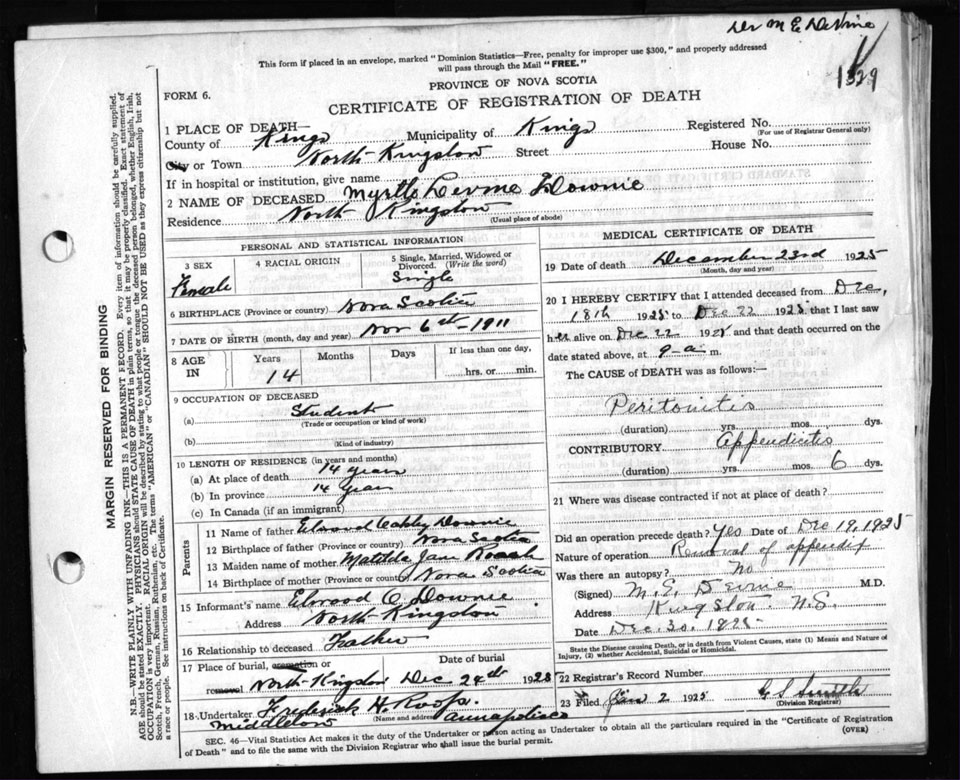 Dr M E DeVine
1329
This form if placed in an envelope, marked "Dominion Statistics—Free, penalty for improper use $300," and properly addressed
will pass through the Mail "FREE."
PROVINCE OF NOVA SCOTIA
FORM 6.
CERTIFICATE OF REGISTRATION OF DEATH
1 PLACE OF DEATH—
County of Kings Municipality of Kings Registered No.
(For use of Registrar General only)
City or Town North Kingston Street House No.
If in hospital or institution, give name
2 NAME OF DECEASED Myrtle Levine Downie
Residence North Kingston
(Usual place of abode)
PERSONAL AND STATISTICAL INFORMATION
3 SEX Female
4 RACIAL ORIGIN
5 Single, Married, Widowed or
Divorced. (Write the word)
Single
6 BIRTHPLACE (Province or country) Nova Scotia
7 DATE OF BIRTH (month, day and year) Nov 6th - 1911
8 AGE IN Years Months Days If less than one day,
14 hrs. or min.
9 OCCUPATION OF DECEASED
(a) Student
(Trade or occupation or kind of work)
(b)
(Kind of industry)
10 LENGTH OF RESIDENCE (in years and months)
(a) At place of death 14 years
(b) In province 14 years
(c) In Canada (if an immigrant)
Parents
11 Name of father Oakley Downie
12 Birthplace of father (Province or country) Nova Scotia
13 Maiden name of mother Matilda Jane Roach
14 Birthplace of mother (Province or country) Nova Scotia
15 Informant's name Elwood O. Downie
Address North Kingston
16 Relationship to deceased Father
17 Place of burial, cremation or Date of burial
removal North Kingston Dec. 24th 1925
18 Undertaker Frederick H. Roop
(Name and address)
Middleton Annapolis Co
MEDICAL CERTIFICATE OF DEATH
19 Date of death December 23rd 1925
(Month, day and year)
20 I HEREBY CERTIFY that I attended deceased from Dec,
18th 1925 to Dec 22 1925 that I last saw
her alive on Dec 22 1925 and that death occurred on the
date stated above, at 9 a m.
The CAUSE of DEATH was as follows:—
Peritonitis
(duration) yrs. mos. dys.
CONTRIBUTORY Appendicitis
(duration) yrs. mos. 6 dys.
21 Where was disease contracted if not at place of death?
Did an operation precede death? Yes Date of Dec 19, 1925
Nature of operation Removal of appendix
Was there an autopsy? No
(Signed) M. E. Devine M.D.
Address Kingston N.S.
Date Dec. 30. 1925
State the Disease causing Death, or in death from Violent Causes, state (1) Means and Nature of
Injury, (2) whether Accidental, Suicidal or Homicidal.
22 Registrar's Record Number
23 Filed Jan 2 1925 Smith
(Division Registrar)
SEC. 46—Vital Statistics Act makes it the duty of the Undertaker or person acting as Undertaker to obtain all the particulars required in the "Certificate of Registration
of Death" and to file the same with the Division Registrar who shall issue the burial permit.
(OVER)
MARGIN RESERVED FOR BINDING
N.B.—WRITE PLAINLY WITH UNFADING INK—THIS IS A PERMANENT RECORD. Every item of information should be carefully supplied.
AGE should be stated EXACTLY. PHYSICIANS should STATE CAUSE OF DEATH in plain terms, so that it may be properly classified. Exact statement of
OCCUPATION is very important. RACIAL ORIGIN will be described by stating to what people or tongue the deceased person belonged, whether English, Irish,
Scotch, French, German, Russian, Ruthenian, etc. The terms "AMERICAN" or "CANADIAN" SHOULD NOT BE USED as they express citizenship but not
a race or people. See instructions on back of Certificate.